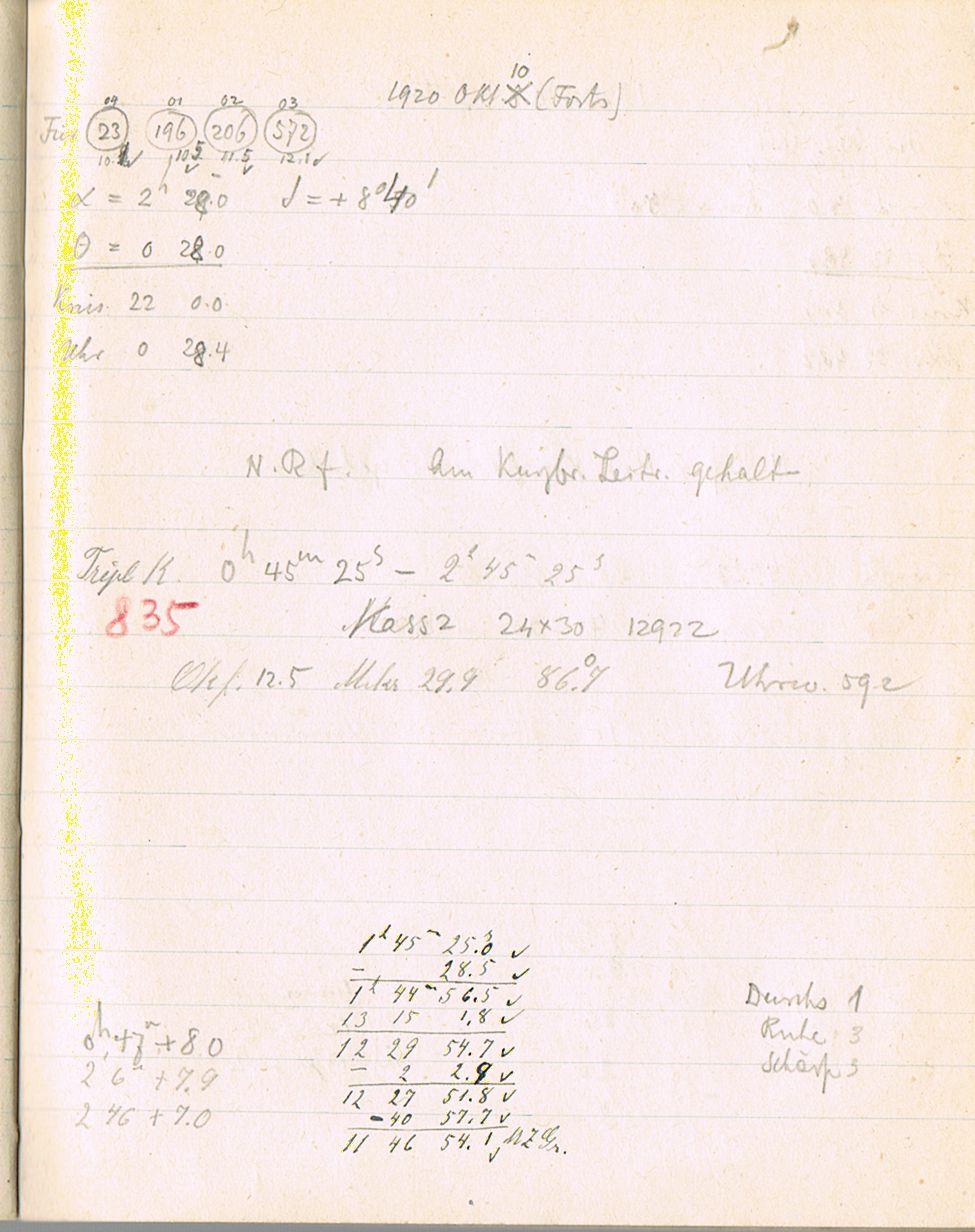 10
1920 Okt 8 (Forts)
09 01 02 03
Für 23 196 206 572
10.1 ✓ 10.5 ✓ 11.5 ✓ 12.1 ✓
α = 2h 28.0 δ = +8° 40'
θ = 0 28.0
Kreis 22 0.0
Uhr 0 28.4
N. R f. Am gehalt
Tripl K. 0h 45m 25s – 2h 45m 25s
835
Hass2 24×30 12922
Okf. 12.5 Mikr 29.9 86.°7 Uhrw. 592
1h 45m 25.s0 ✓
– 28.5 ✓
1h 44m 56.5 ✓
13 15 1.8 ✓
12 29 54.7 ✓
– 2 2.9 ✓
12 27 51.8 ✓
–40 57.7 ✓
11 46 54.1 MZGr.
0h 47m +8.0
2 6m +7.9
2 46 +7.0
Durchs 1
Ruhe 3
Schärf 3